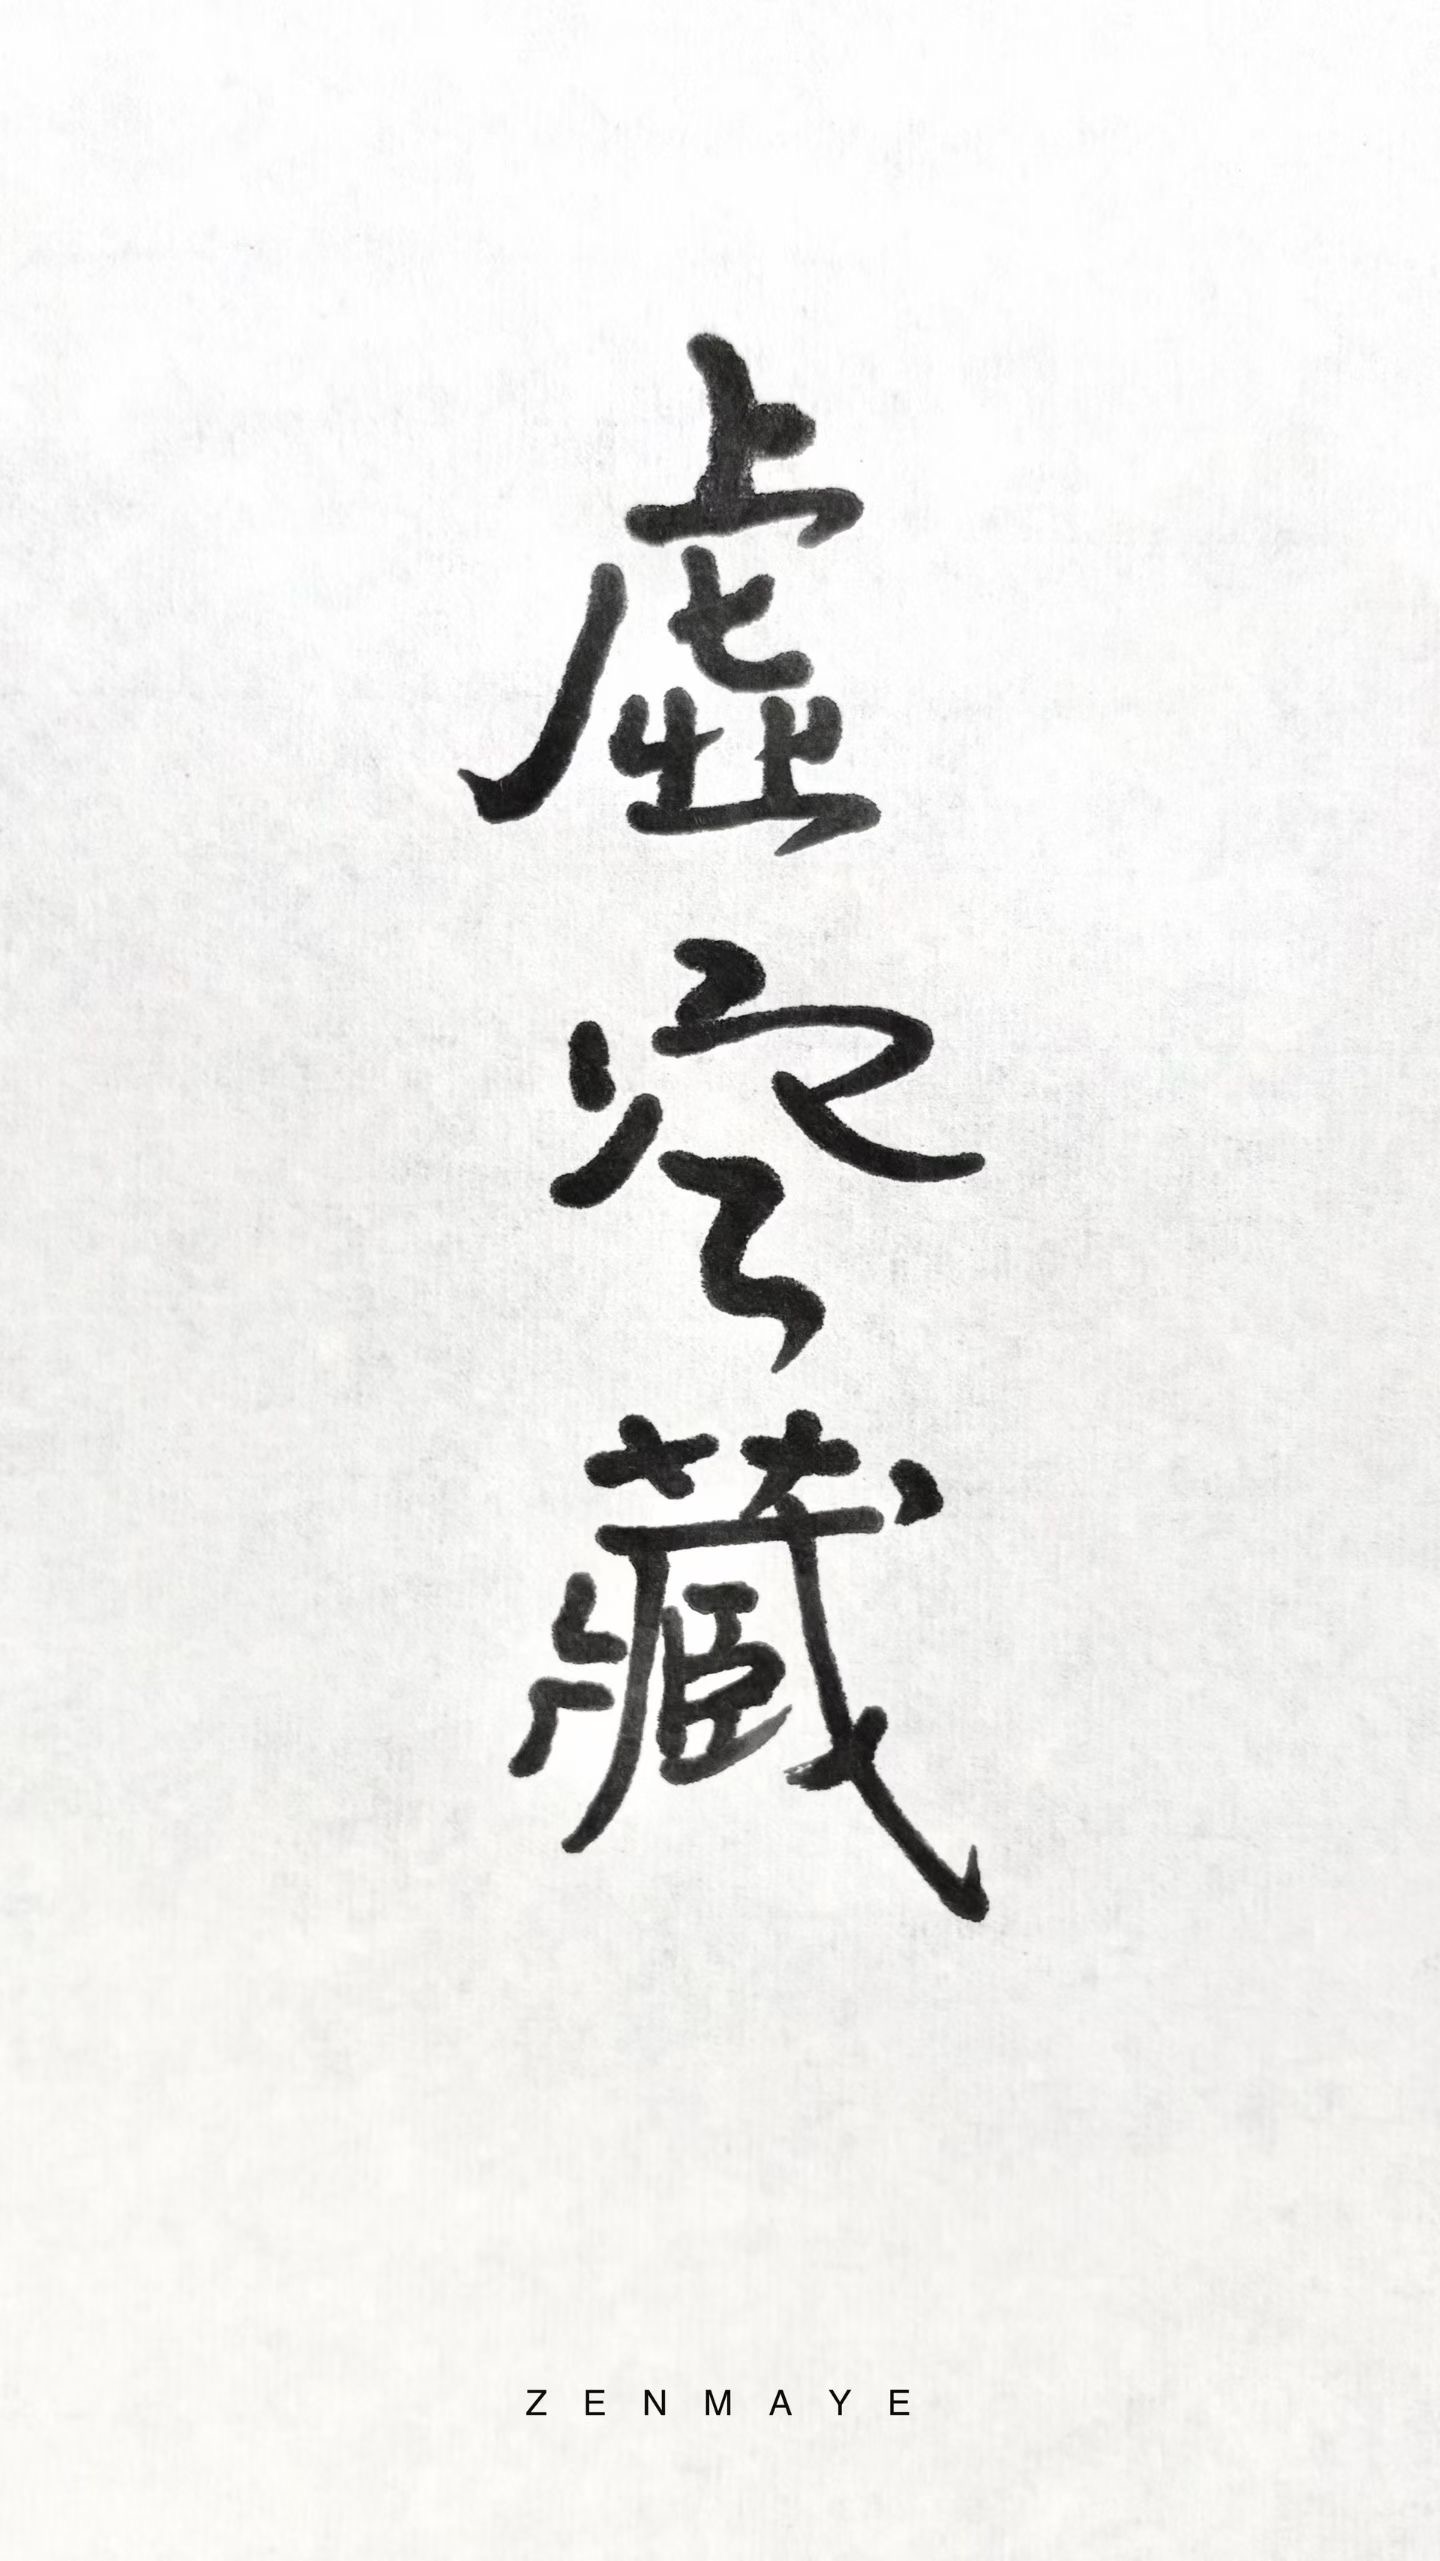 虛空藏
ZENMAYE